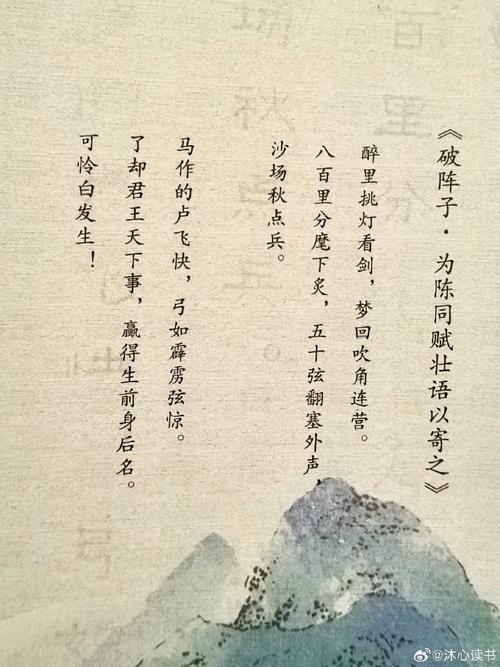 《破阵子·为陈同赋壮语以寄之》
醉里挑灯看剑，梦回吹角连营。
八百里分麾下炙，五十弦翻塞外声，
沙场秋点兵。
马作的卢飞快，弓如霹雳弦惊。
了却君王天下事，赢得生前身后名。
可怜白发生！
@沐心读书